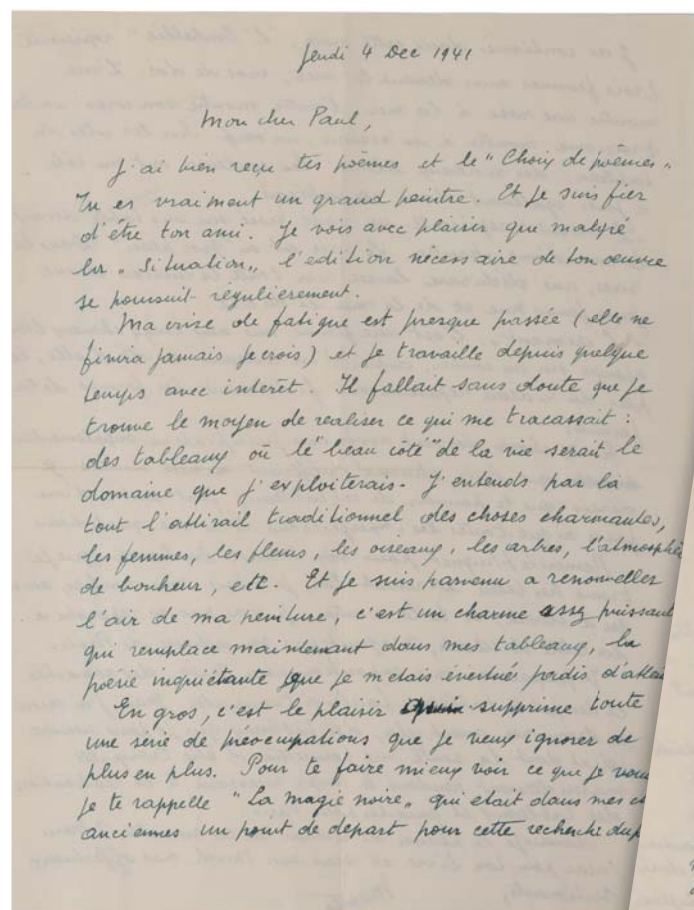 Jeudi 4 Dec 1941
Mon cher Paul,
J'ai bien reçu tes poèmes et le "Choix de poèmes„
Tu es vraiment un grand peintre. Et je suis fier
d'être ton ami. Je vois avec plaisir que malgré
la „Situation„ l'edition nécessaire de ton oeuvre
se poursuit régulierement.
Ma crise de fatigue est presque passée (elle ne
finira jamais je crois) et je travaille depuis quelque
temps avec interêt. Il fallait sans doute que je
trouve le moyen de realiser ce qui me tracassait :
des tableaux où le "beau côté" de la vie serait le
domaine que j'exploiterais. J'entends par là
tout l'attirail traditionnel des choses charmantes,
les femmes, les fleurs, les oiseaux, les arbres, l'atmosphè
de bonheur, etc. Et je suis parvenu a renouveller
l'air de ma peinture, c'est un charme assez puissant
qui remplace maintenant dans mes tableaux, la
poésie inquiétante que je m'etais évertué jadis d'attei
En gros, c'est le plaisir supprime toute
une série de préocupations que je veux ignorer de
plus en plus. Pour te faire mieux voir ce que je
je te rappelle "La magie noire„ qui etait dans mes
anciennes un point de depart pour cette recherche